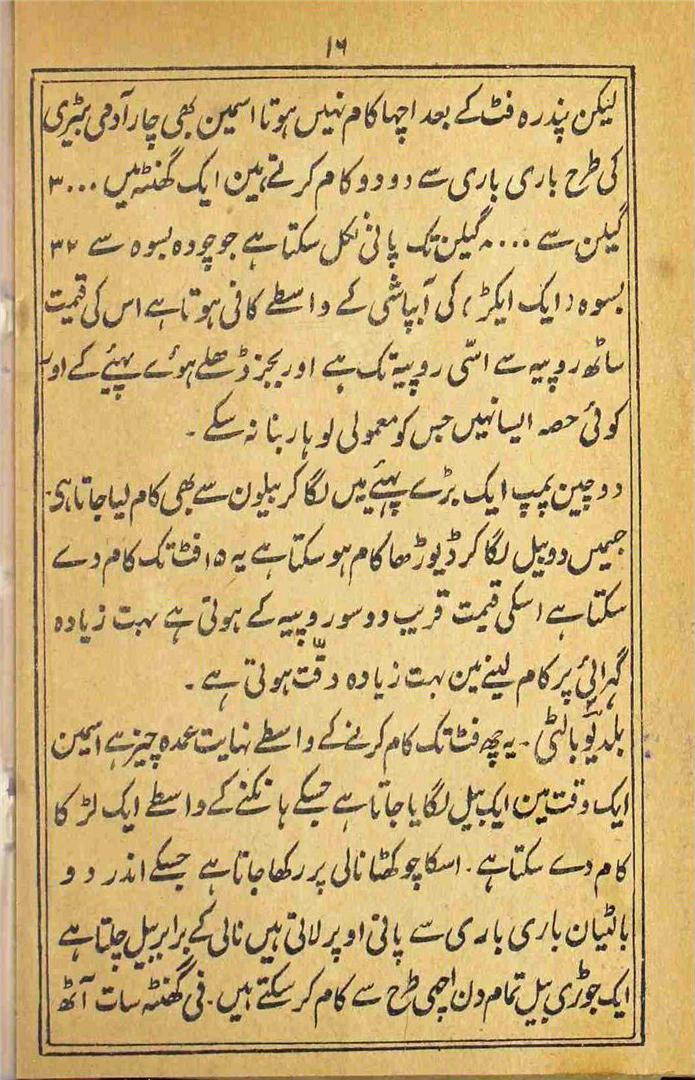 ۱۶
لیکن پندرہ فٹ کے بعد اچھا کام نہیں ہوتا اسمین بھی چار آدمی بٹیری
کی طرح باری باری سے دو دو کام کرتے ہین ایک گھنٹہ میں ۳۰۰۰
گیلن سے گیلن تک پانی نکل سکتا ہے جو چودہ بسوہ سے ۳۲
بسوہ (ایک ایکڑ) کی آبپاشی کے واسطے کافی ہوتا ہے اس کی قیمت
ساٹھ روپیہ سے اسّی روپیہ تک ہے اور بجز ڈھلے ہوئے پہیئے کے اور
کوئی حصہ ایسا نہیں جس کو معمولی لوہار بنا نہ سکے ۔
دو چین پمپ ایک بڑے پہیئے میں لگا کر بیلون سے بھی کام لیا جاتا ہی
جسمیں دو بیل لگا کر ڈیوڑھا کام ہو سکتا ہے یہ ۱۵ فٹ تک کام دے
سکتا ہے اسکی قیمت قریب دو سو روپیہ کے ہوتی ہے بہت زیادہ
گہرائی پر کام لینے مین بہت زیادہ دقّت ہوتی ہے ۔
بلدیو بالٹی ۔ یہ چھ فٹ تک کام کرنے کے واسطے نہایت عمدہ چیز ہے اسمین
ایک وقت مین ایک بیل لگایا جاتا ہے جسکے ہانکنے کے واسطے ایک لڑکا
کام دے سکتا ہے ۔ اسکا چوکھٹا نالی پر رکھا جاتا ہے جسکے اندر دو
بالٹیان باری باری سے پانی اوپر لاتی ہیں نالی کے برابر بیل چلتا ہے
ایک جوڑی بیل تمام دن اچھی طرح سے کام کر سکتے ہیں ۔ فی گھنٹہ سات آٹھ